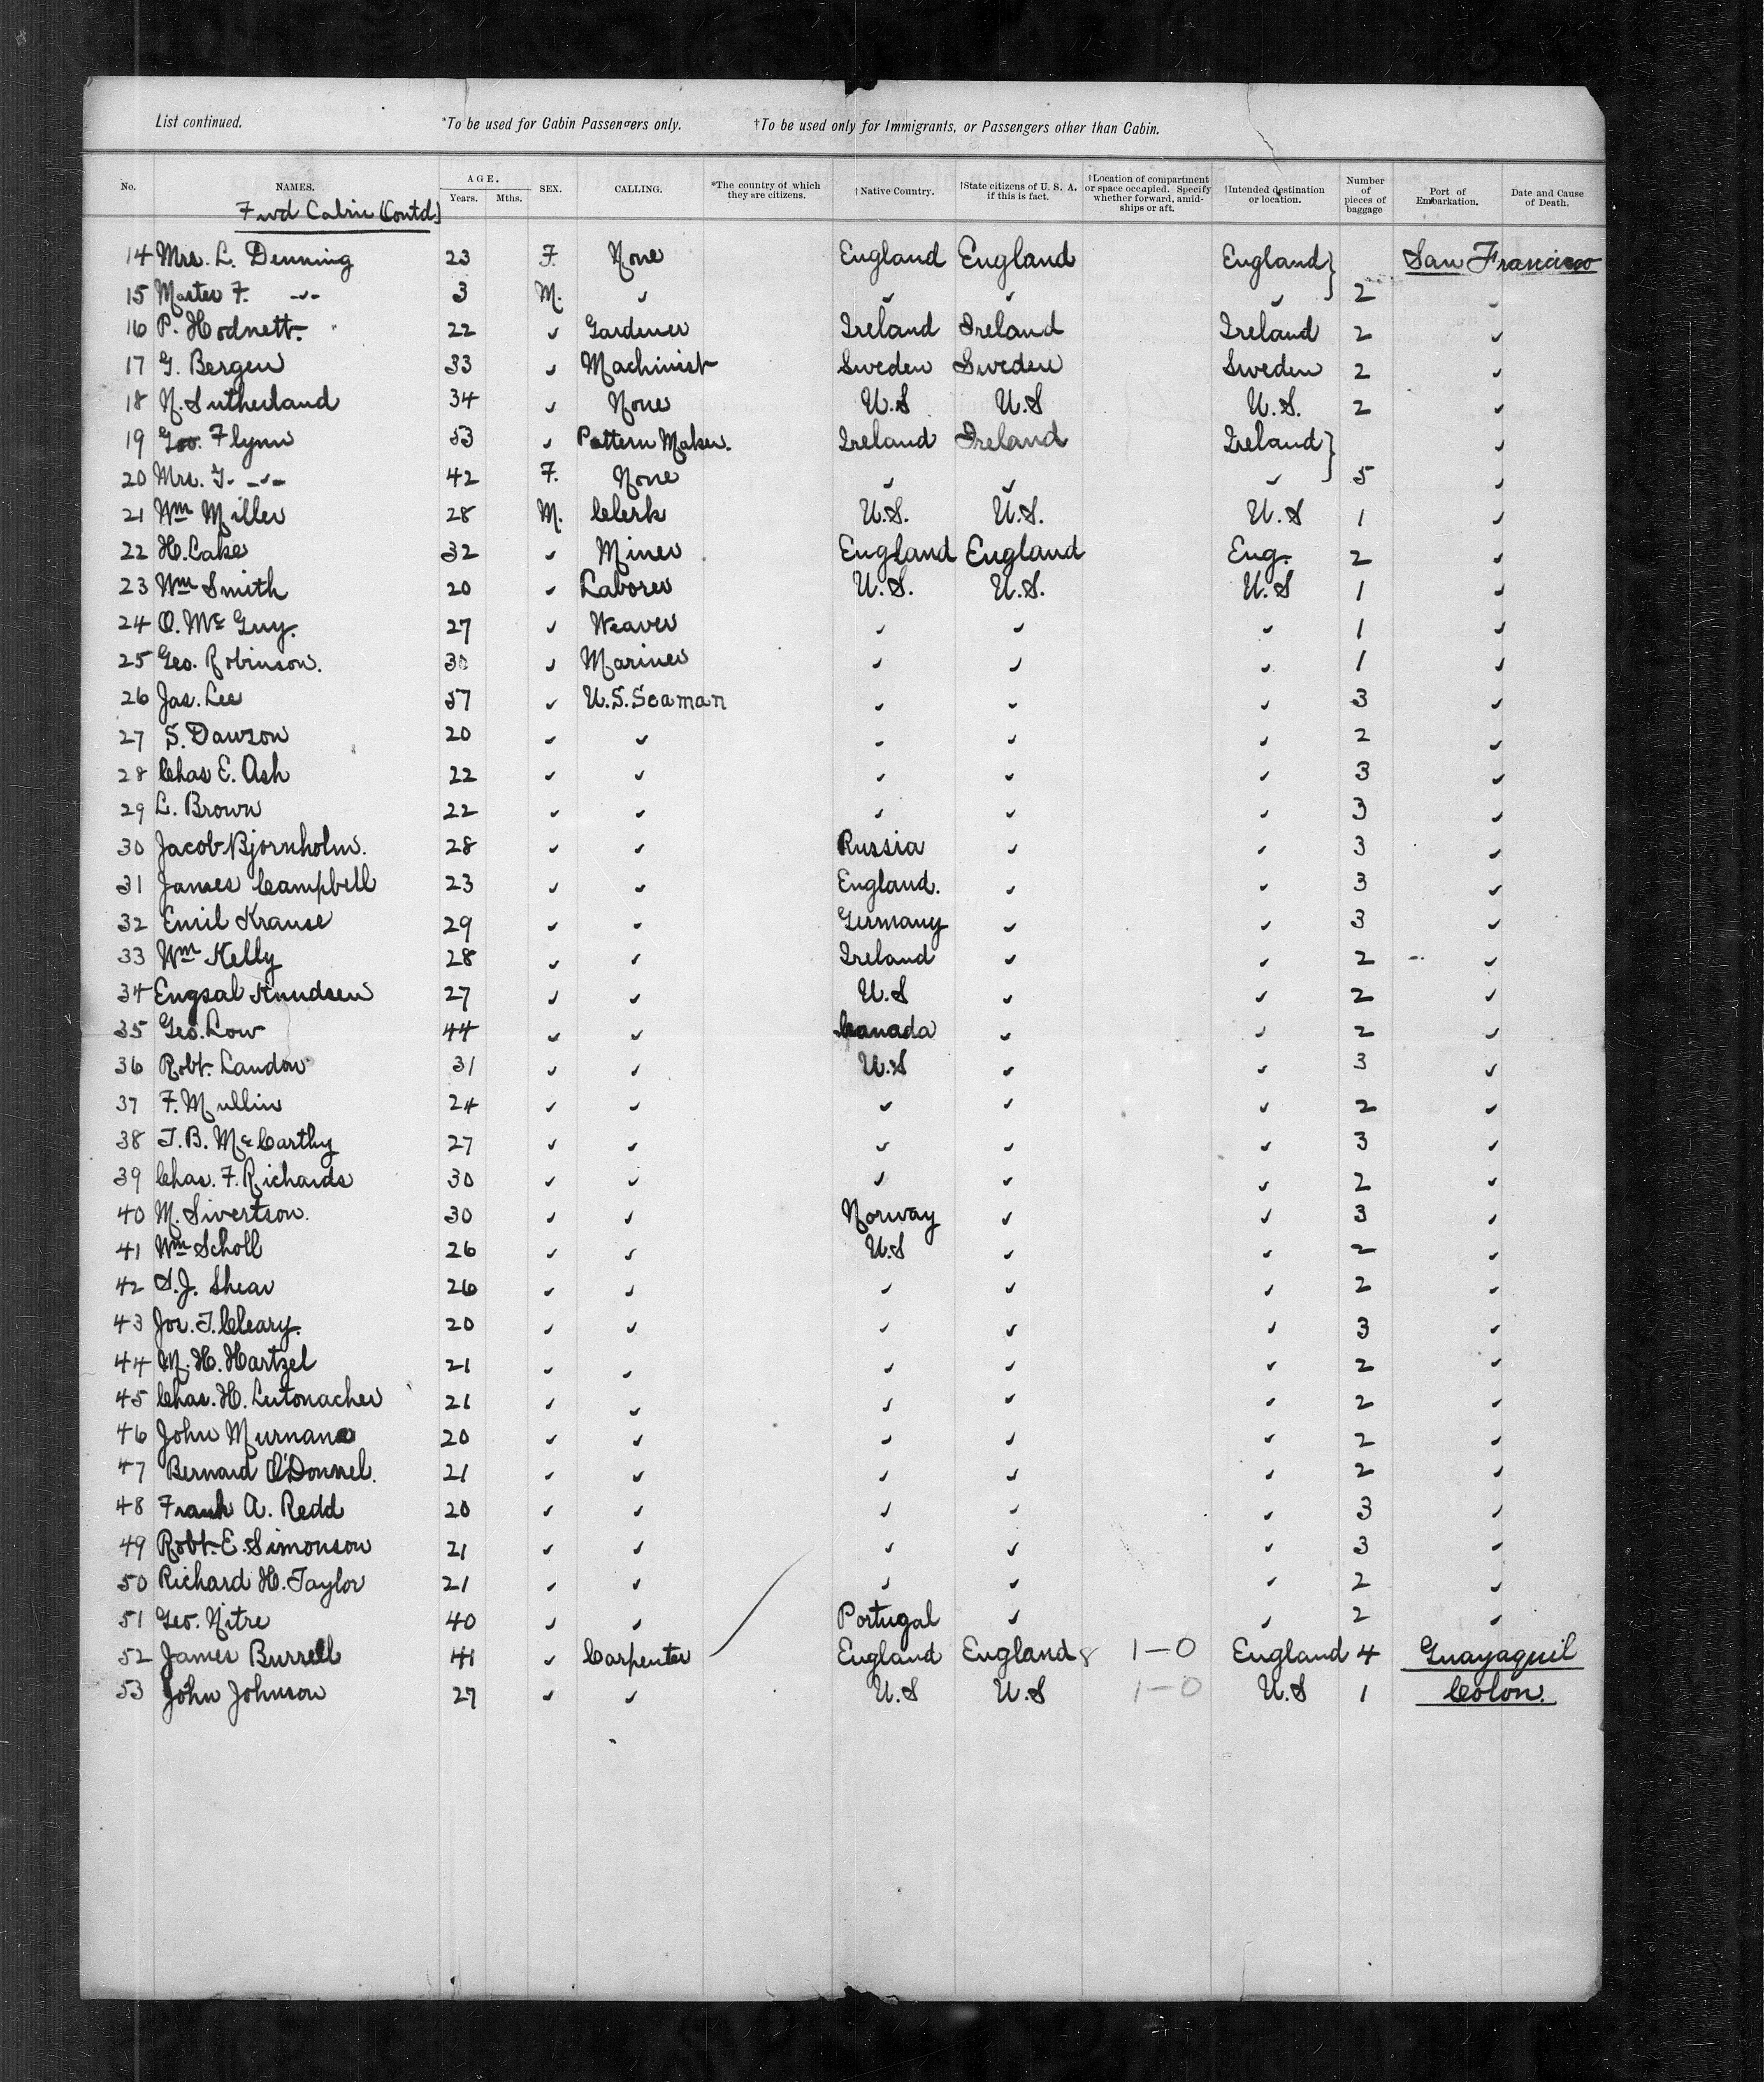 List continued. *To be used for Cabin Passengers only. †To be used only for Immigrants, or Passengers other than Cabin.
No. NAMES. AGE. Years. Mths. SEX. CALLING. *The country of which they are citizens. †Native Country. †State citizens of U. S. A. if this is fact. †Location of compartment or space occupied. Specify whether forward, amidships or aft. †Intended destination or location. Number of pieces of baggage Port of Embarkation. Date and Cause of Death.
Fwd Cabin (Contd)
14 Mrs. L. Denning 23 F. None England England England } San Francisco
15 Master F. -"- 3 M. ✓ ✓ ✓ ✓ 2 ✓
16 P. Hodnett 22 ✓ Gardener Ireland Ireland Ireland 2 ✓
17 G. Bergen 33 ✓ Machinist Sweden Sweden Sweden 2 ✓
18 N. Sutherland 34 ✓ None U.S U.S U.S. 2 ✓
19 Geo. Flynn 53 ✓ Pattern Maker. Ireland Ireland Ireland } ✓
20 Mrs. F. -"- 42 F. None ✓ ✓ ✓ 5 ✓
21 Wm Miller 28 M. Clerk U.S. U.S. U.S 1 ✓
22 H. Lake 32 ✓ Miner England England Eng. 2 ✓
23 Wm Smith 20 ✓ Laborer U.S. U.S. U.S 1 ✓
24 O. Mc Guy. 27 ✓ Weaver ✓ ✓ ✓ 1 ✓
25 Geo. Robinson. 30 ✓ Mariner ✓ ✓ ✓ 1 ✓
26 Jas. Lee 57 ✓ U.S. Seaman ✓ ✓ ✓ 3 ✓
27 S. Dawson 20 ✓ ✓ ✓ ✓ ✓ 2 ✓
28 Chas E. Ash 22 ✓ ✓ ✓ ✓ ✓ 3 ✓
29 L. Brown 22 ✓ ✓ ✓ ✓ ✓ 3 ✓
30 Jacob Bjornholm. 28 ✓ ✓ Russia ✓ ✓ 3 ✓
31 James Campbell 23 ✓ ✓ England. ✓ ✓ 3 ✓
32 Emil Krause 29 ✓ ✓ Germany ✓ ✓ 3 ✓
33 Wm Kelly 28 ✓ ✓ Ireland ✓ ✓ 2 ✓
34 Engsal Knudsen 27 ✓ ✓ U.S ✓ ✓ 2 ✓
35 Geo. Low 44 ✓ ✓ Canada ✓ ✓ 2 ✓
36 Robt. Landon 31 ✓ ✓ U.S ✓ ✓ 3 ✓
37 F. Mullin 24 ✓ ✓ ✓ ✓ ✓ 2 ✓
38 T. B. McCarthy 27 ✓ ✓ ✓ ✓ ✓ 3 ✓
39 Chas. F. Richards 30 ✓ ✓ ✓ ✓ ✓ 2 ✓
40 M. Sivertson. 30 ✓ ✓ Norway ✓ ✓ 3 ✓
41 Wm Scholl 26 ✓ ✓ U.S ✓ ✓ 2 ✓
42 S. J. Shear 26 ✓ ✓ ✓ ✓ ✓ 2 ✓
43 Jos. T. Cleary. 20 ✓ ✓ ✓ ✓ ✓ 3 ✓
44 M. H. Hartzel 21 ✓ ✓ ✓ ✓ ✓ 2 ✓
45 Chas. H. Lutonacher 21 ✓ ✓ ✓ ✓ ✓ 2 ✓
46 John Murnane 20 ✓ ✓ ✓ ✓ ✓ 2 ✓
47 Bernard O'Donnel. 21 ✓ ✓ ✓ ✓ ✓ 2 ✓
48 Frank A. Redd 20 ✓ ✓ ✓ ✓ ✓ 3 ✓
49 Robt. E. Simonson 21 ✓ ✓ ✓ ✓ ✓ 3 ✓
50 Richard H. Taylor 21 ✓ ✓ ✓ ✓ ✓ 2 ✓
51 Geo. Nitre 40 ✓ ✓ Portugal ✓ ✓ 2 ✓
52 James Burrell 41 ✓ Carpenter England England 8 1-0 England 4 Guayaquil
53 John Johnson 27 ✓ ✓ U.S U.S 1-0 U.S 1 Colon.